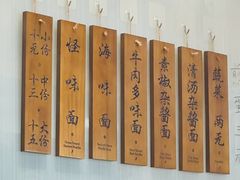 蔬菜 两元
清汤杂酱面
青椒杂酱面
牛肉多味面
海味面
怪味面
小份 中份 大份
十元 十三 十五